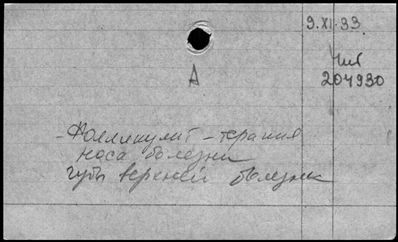 9.XI.33
Чит
204930
А
- Фолликулит - терапия
носа болезни
губы верхней болезни